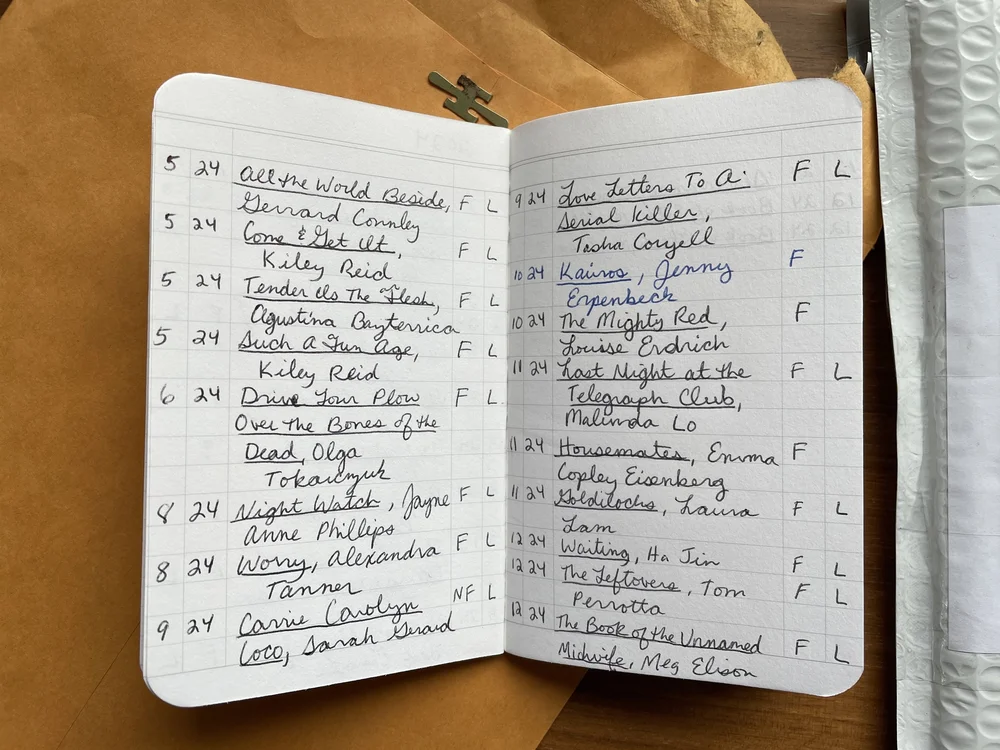 5 24 All the World Beside, F L
Gerrard Connley
5 24 Come & Get It, F L
Kiley Reid
5 24 Tender Is The Flesh, F L
Agustina Bazterrica
5 24 Such A Fun Age, F L
Kiley Reid
6 24 Drive Your Plow F L
Over the Bones of the
Dead, Olga
Tokarczuk
8 24 Night Watch, Jayne F L
Anne Phillips
8 24 Worry, Alexandra F L
Tanner
9 24 Carrie Carolyn NF L
Coco, Sarah Gerard
9 24 Love Letters To A F L
Serial Killer,
Tasha Coryell
10 24 Kairos, Jenny F
Erpenbeck
10 24 The Mighty Red, F
Louise Erdrich
11 24 Last Night at the F L
Telegraph Club,
Malinda Lo
11 24 Housemates, Emma F
Copley Eisenberg
11 24 Goldilocks, Laura F L
Lam
12 24 Waiting, Ha Jin F L
12 24 The Leftovers, Tom F L
Perrotta
12 24 The Book of the Unnamed F L
Midwife, Meg Elison